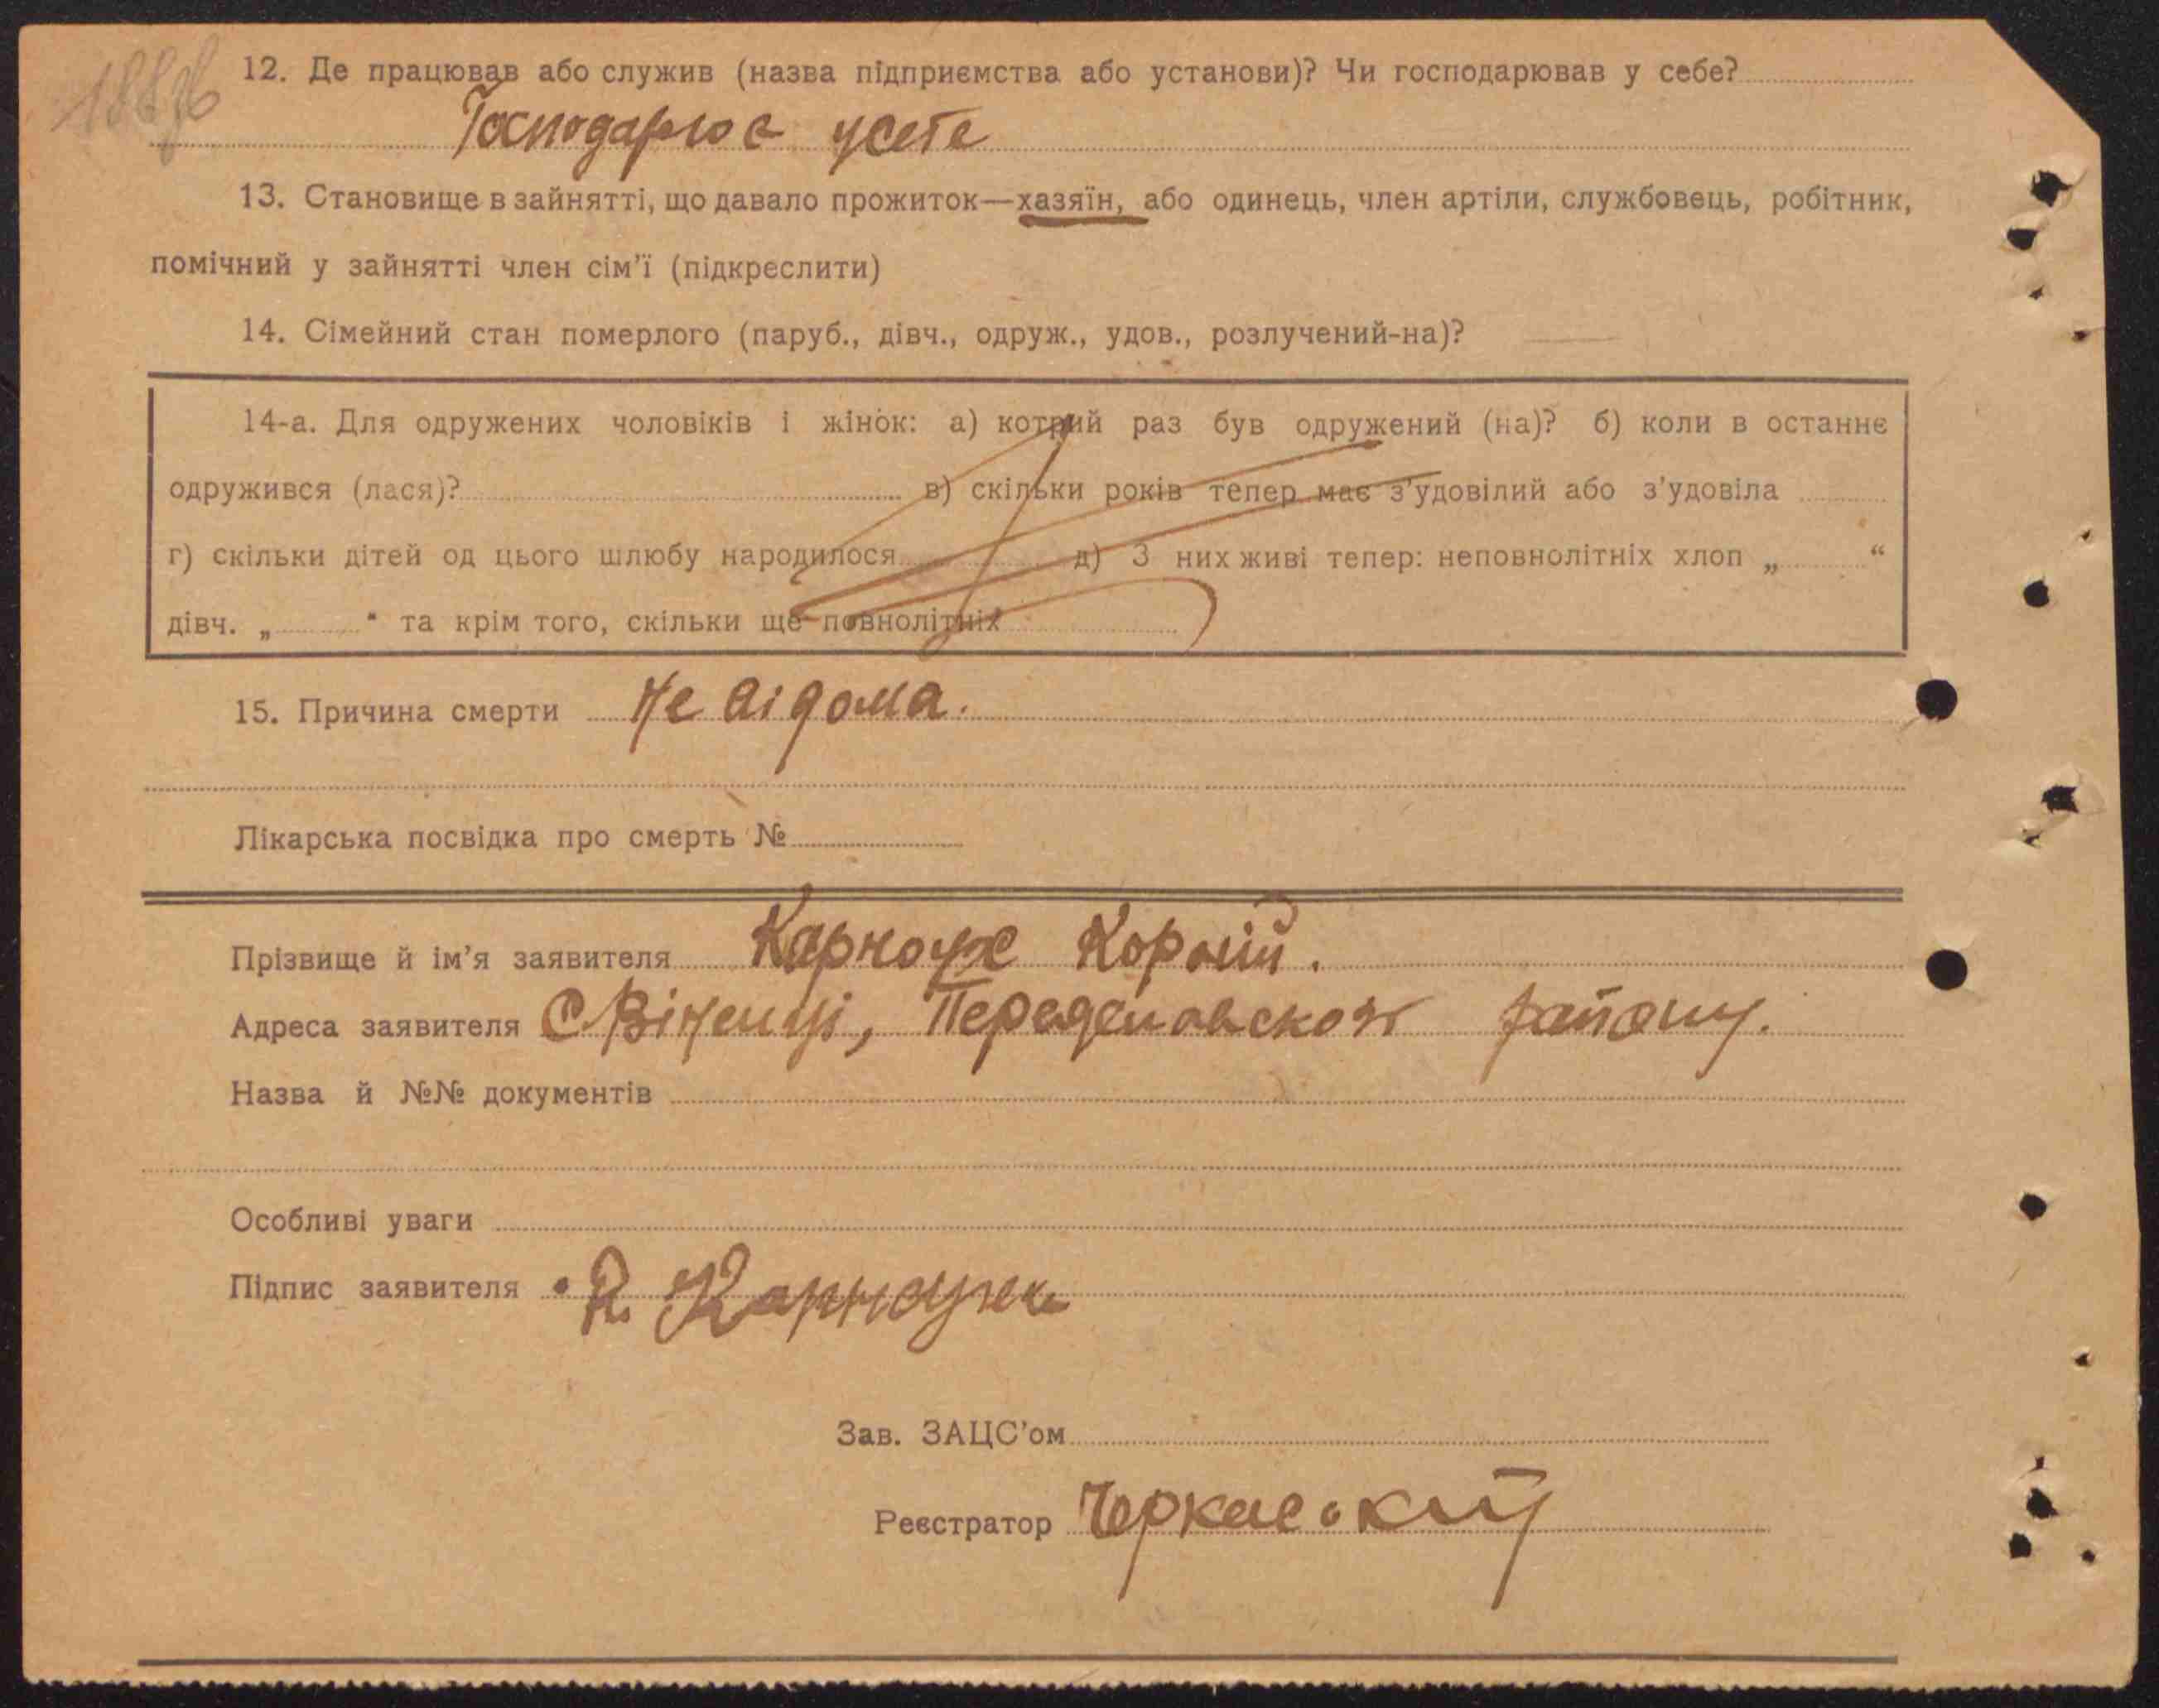 188зв
12. Де працював або служив (назва підприємства або установи)? Чи господарював у себе?
Господарює усебе
13. Становище в зайнятті, що давало прожиток—хазяїн, або одинець, член артіли, службовець, робітник,
помічний у зайнятті член сім’ї (підкреслити)
14. Сімейний стан померлого (паруб., дівч., одруж., удов., розлучений-на)?
14-а. Для одружених чоловіків і жінок: а) котрий раз був одружений (на)? б) коли в останнє
одружився (лася)? в) скільки років тепер має з’удовілий або з’удовіла
г) скільки дітей од цього шлюбу народилося д) З них живі тепер: неповнолітніх хлоп „ “
дівч. „ “ та крім того, скільки ще повнолітніх
15. Причина смерти Не відома.
Лікарська посвідка про смерть №
Прізвище й ім’я заявителя Карноух Корній.
Адреса заявителя С Вітенці, району.
Назва й №№ документів
Особливі уваги
Підпис заявителя К. Карноух
Зав. ЗАЦС’ом
Реєстратор Черкаський